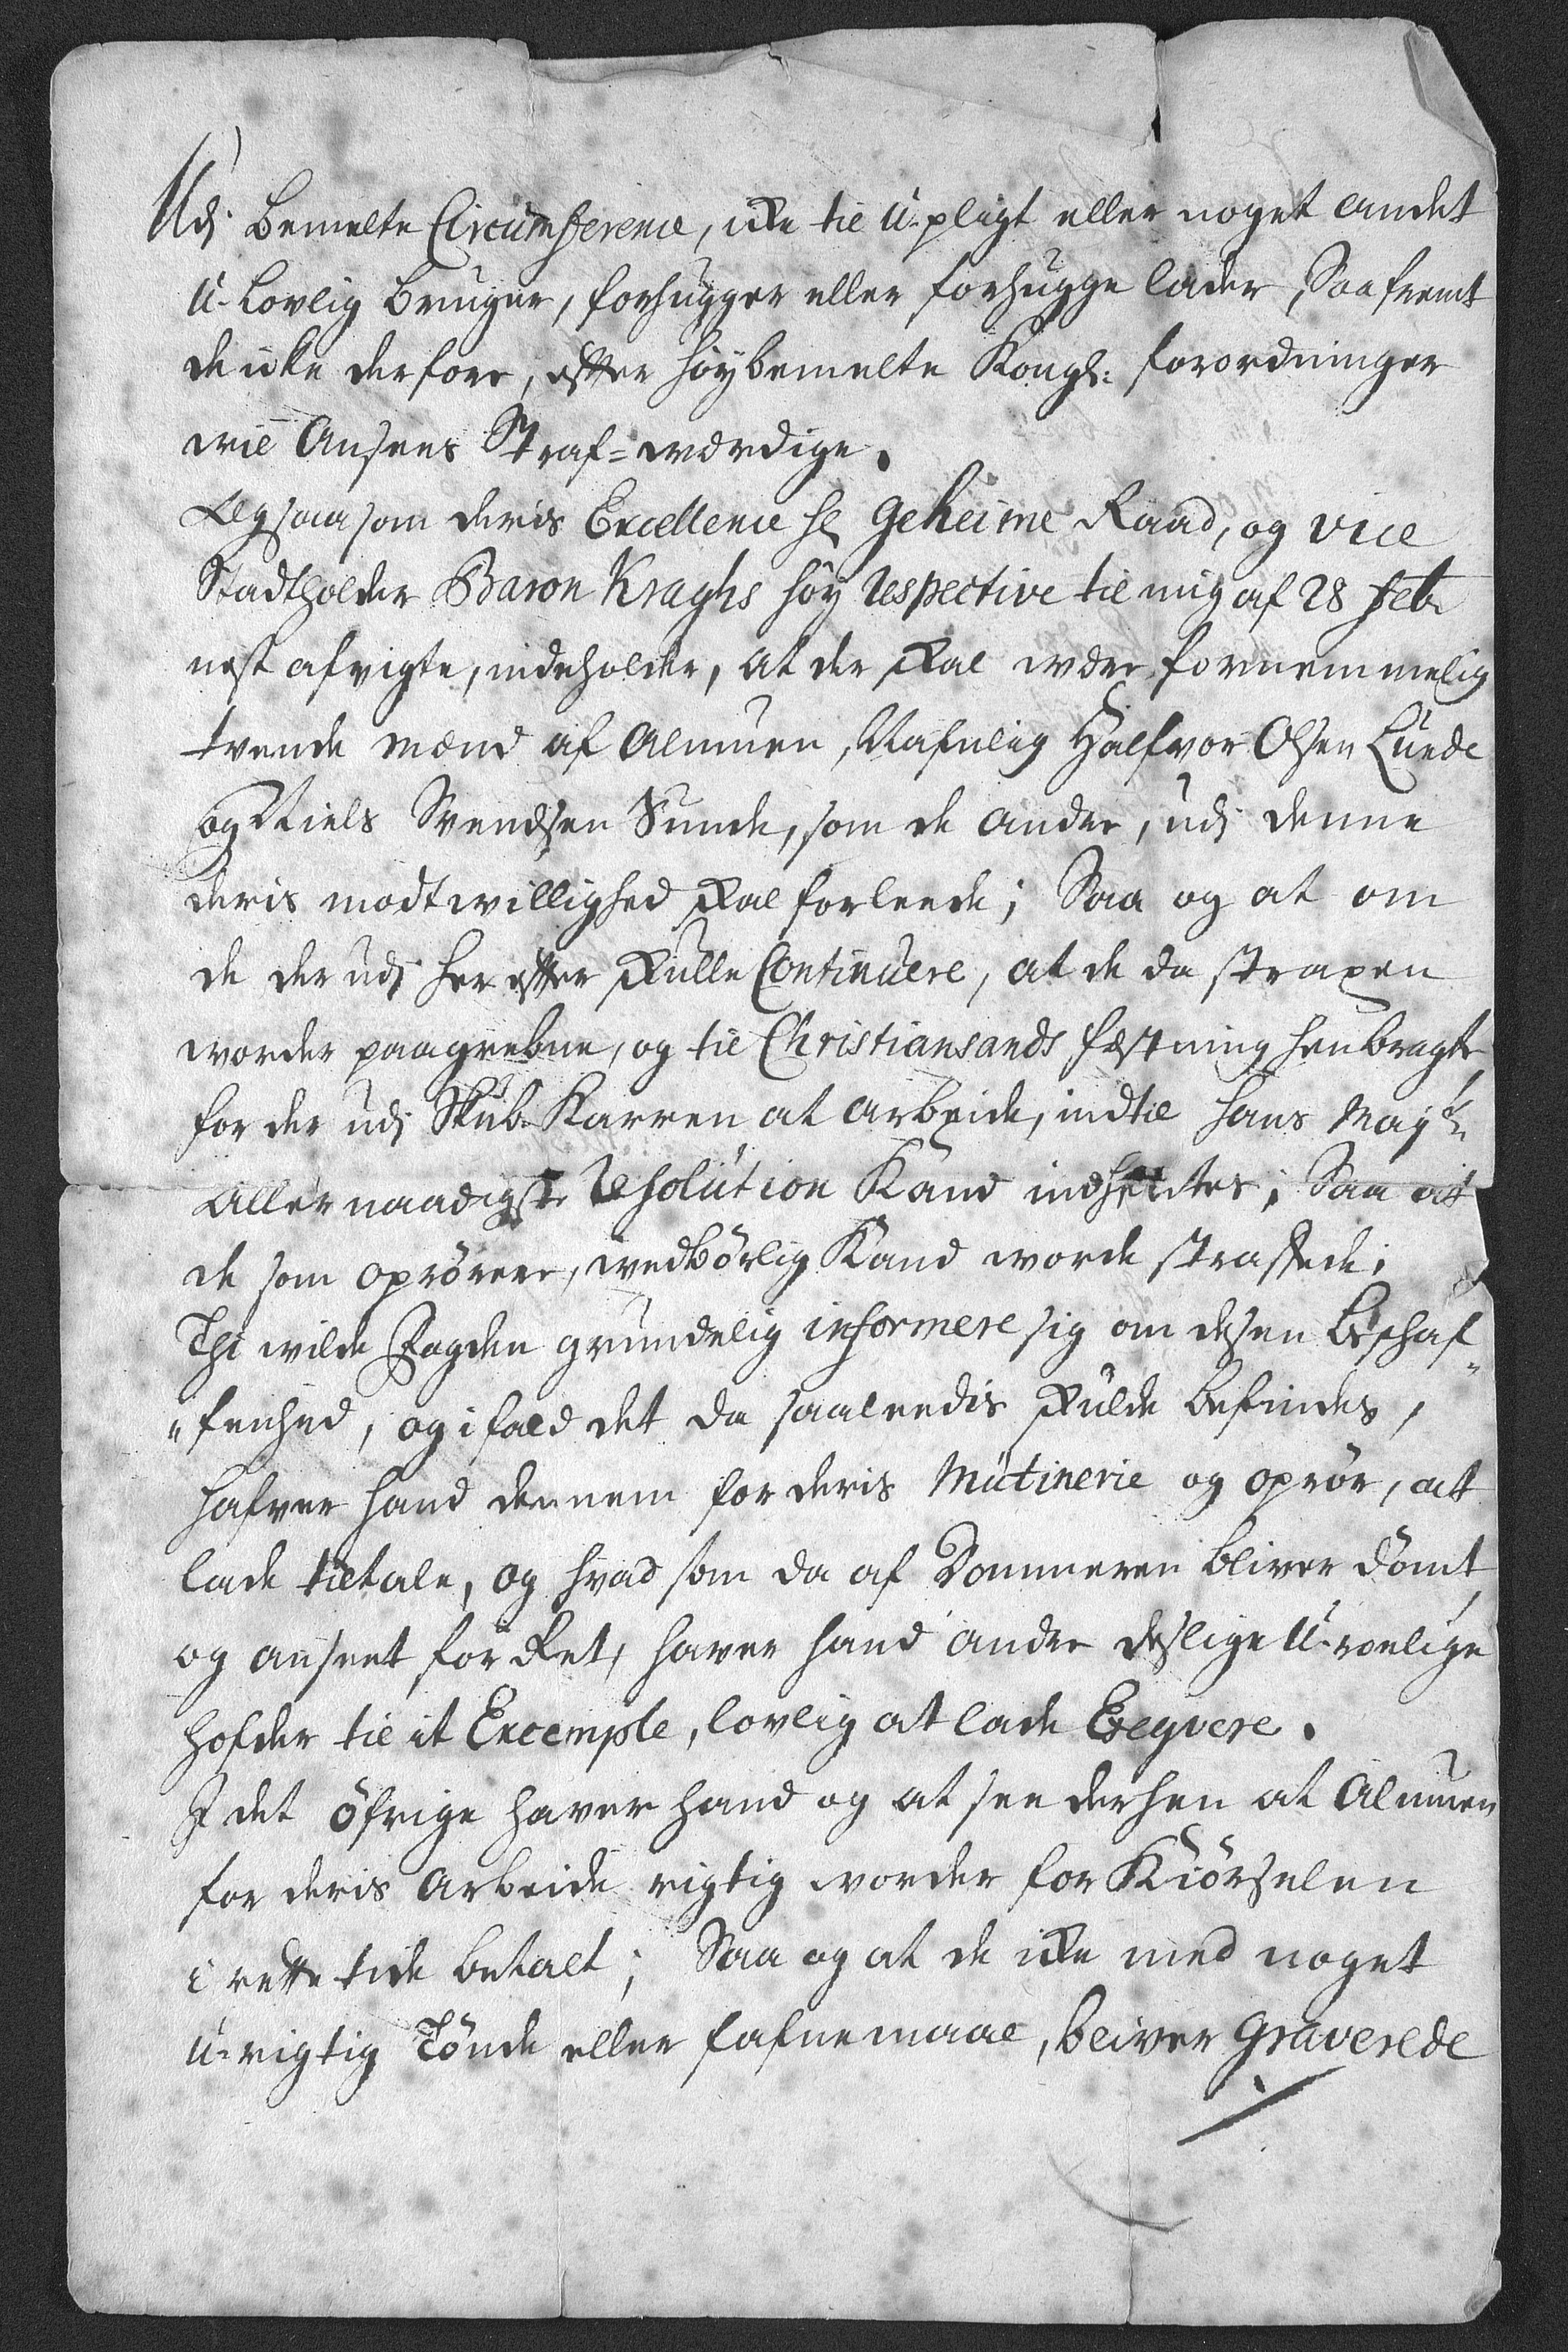 Udj bemelte Circumference, icke til u-pligt eller noget andet
u-lovlig bruger, forhugger eller forhugge lader, Saafremt
de icke derfore, efter høybemelte Kongl: forordninger
wil ansees Straf=wærdige.
Ligesaasom deris Excellence Hr Geheime Raad, og vice
Stadtholder Baron Kraghs høy respective til mig af 28 feb:
nest afvigte, indeholder, at der skal være fornemmelig
tvende mænd af Almuen, Nafnlig Halfvor Olsen Lunde
og Niels Svendsen Sunde, som de andre, udj denne
deris modtwillighed skal forleede; Saa og at om
de der udj her efter skulle Continuere, at de da straxen
worder paagrebne, og til Christiansands fæstning henbragte,
for der udj Skub-Karren at arbeide, indtil hans Mayts:
allernaadigste Resolution Kand indhentes; Saa at
de som oprørere, wedbørlig Kand worde straffede;
Thi wilde fogden grundelig informere sig om dessen beschaf„
„fenhed, og ifald det da saaleedis skulde befindes,
hafver hand dennem for deris Mütinerie og oprør, at
lade tiltale, og hvad som da af Dommeren bliver dømt,
og anseet for Ret, haver hand andre deslige U-roelige
hofder til it Excemple, lovlig at lade Exeqvere.
I det øfrige haver hand og at see derhen at Almuen
for deris arbeide rigtig worder for Kiørselen
i rette tide betalt; Saa og at de icke med noget
u-rigtig Tønde eller fafnemaal, bliver Graverede